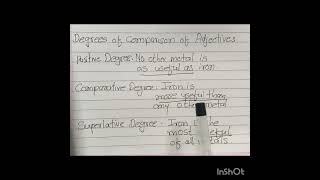 Degrees of Comparison of Adjectives
Positive Degree:- No other metal is
as useful as iron
Comparative Degree:- Iron is
more useful than
any other metal
Superlative Degree:- Iron is the
most useful
of all metals
InShOt